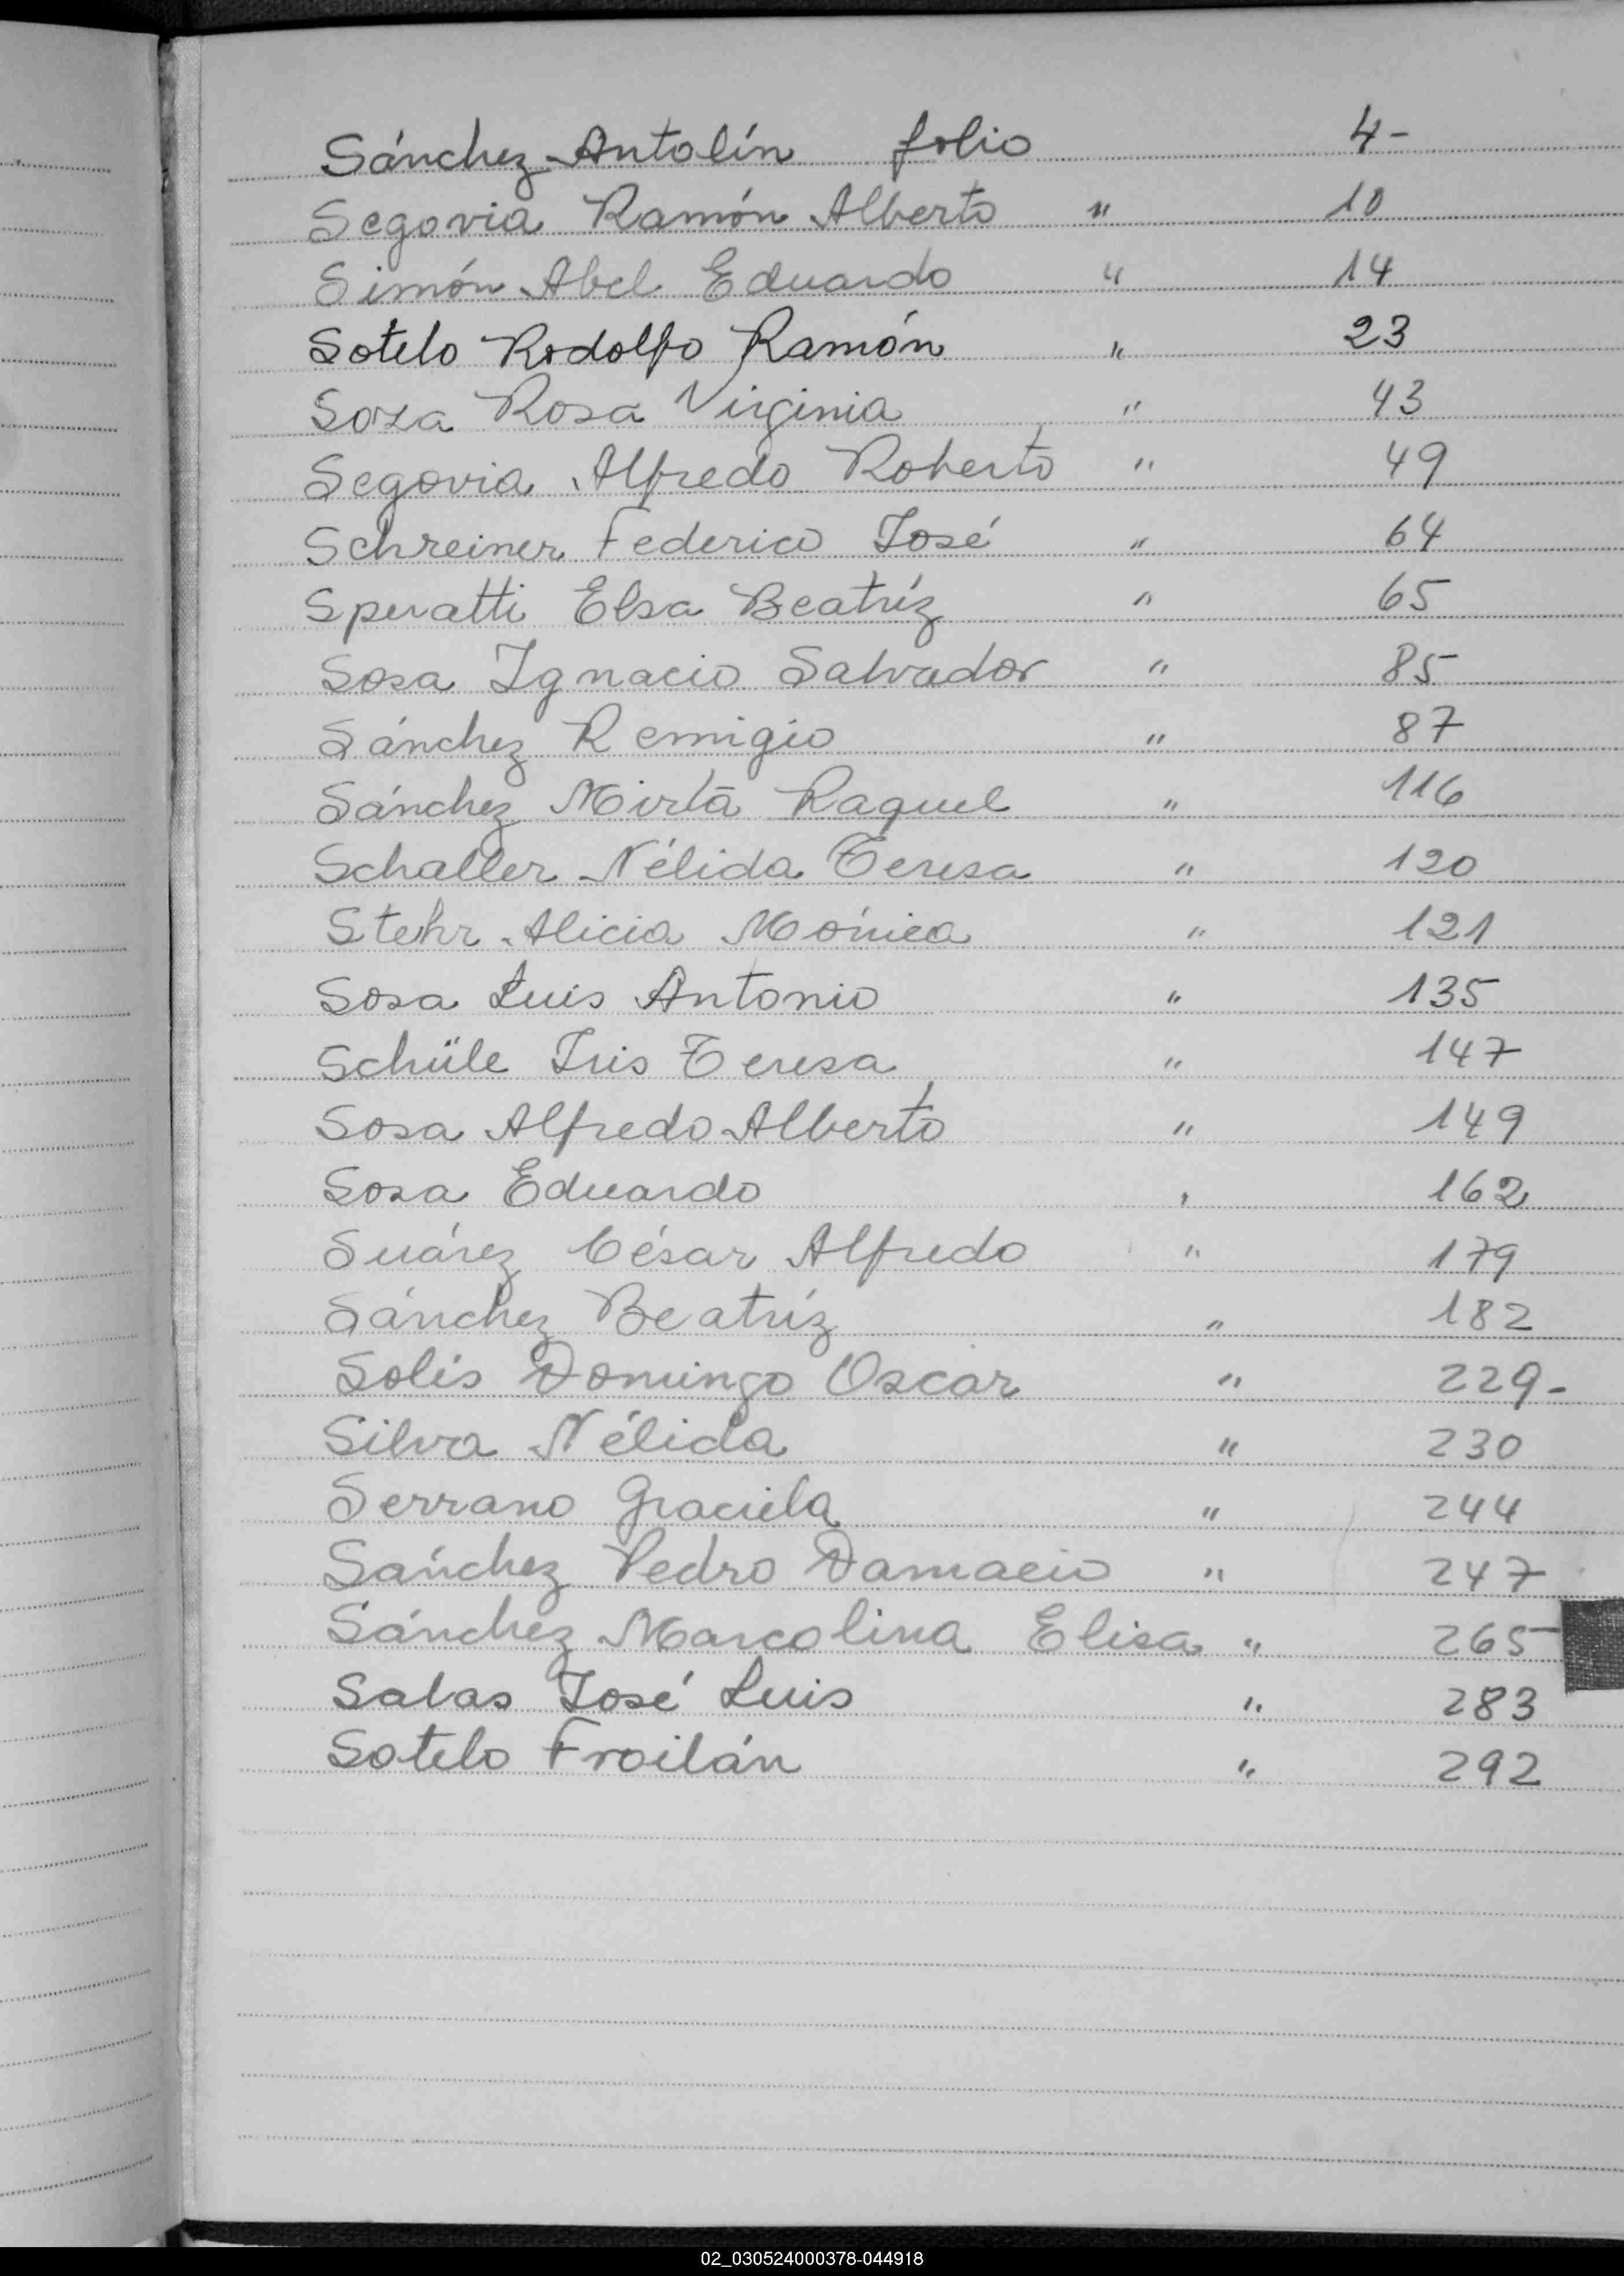 Sánchez Antolín folio 4-
Segovia Ramón Alberto " 10
Simón Abel Eduardo " 14
Sotelo Rodolfo Ramón " 23
Soza Rosa Virginia " 43
Segovia Alfredo Roberto " 49
Schreiner Federico José " 64
Speratti Elsa Beatríz " 65
Sosa Ignacio Salvador " 85
Sánchez Remigio " 87
Sánchez Mirta Raquel " 116
Schaller Nélida Teresa " 120
Stehr Alicia Mónica " 121
Sosa Luis Antonio " 135
Schüle Iris Teresa " 147
Sosa Alfredo Alberto " 149
Sosa Eduardo " 162
Suárez César Alfredo " 179
Sánchez Beatríz " 182
Solis Domingo Oscar " 229-
Silva Nélida " 230
Serrano Graciela " 244
Sánchez Pedro Damacio " 247
Sánchez Marcolina Elisa " 265
Salas José Luis " 283
Sotelo Froilán " 292
02_030524000378-044918